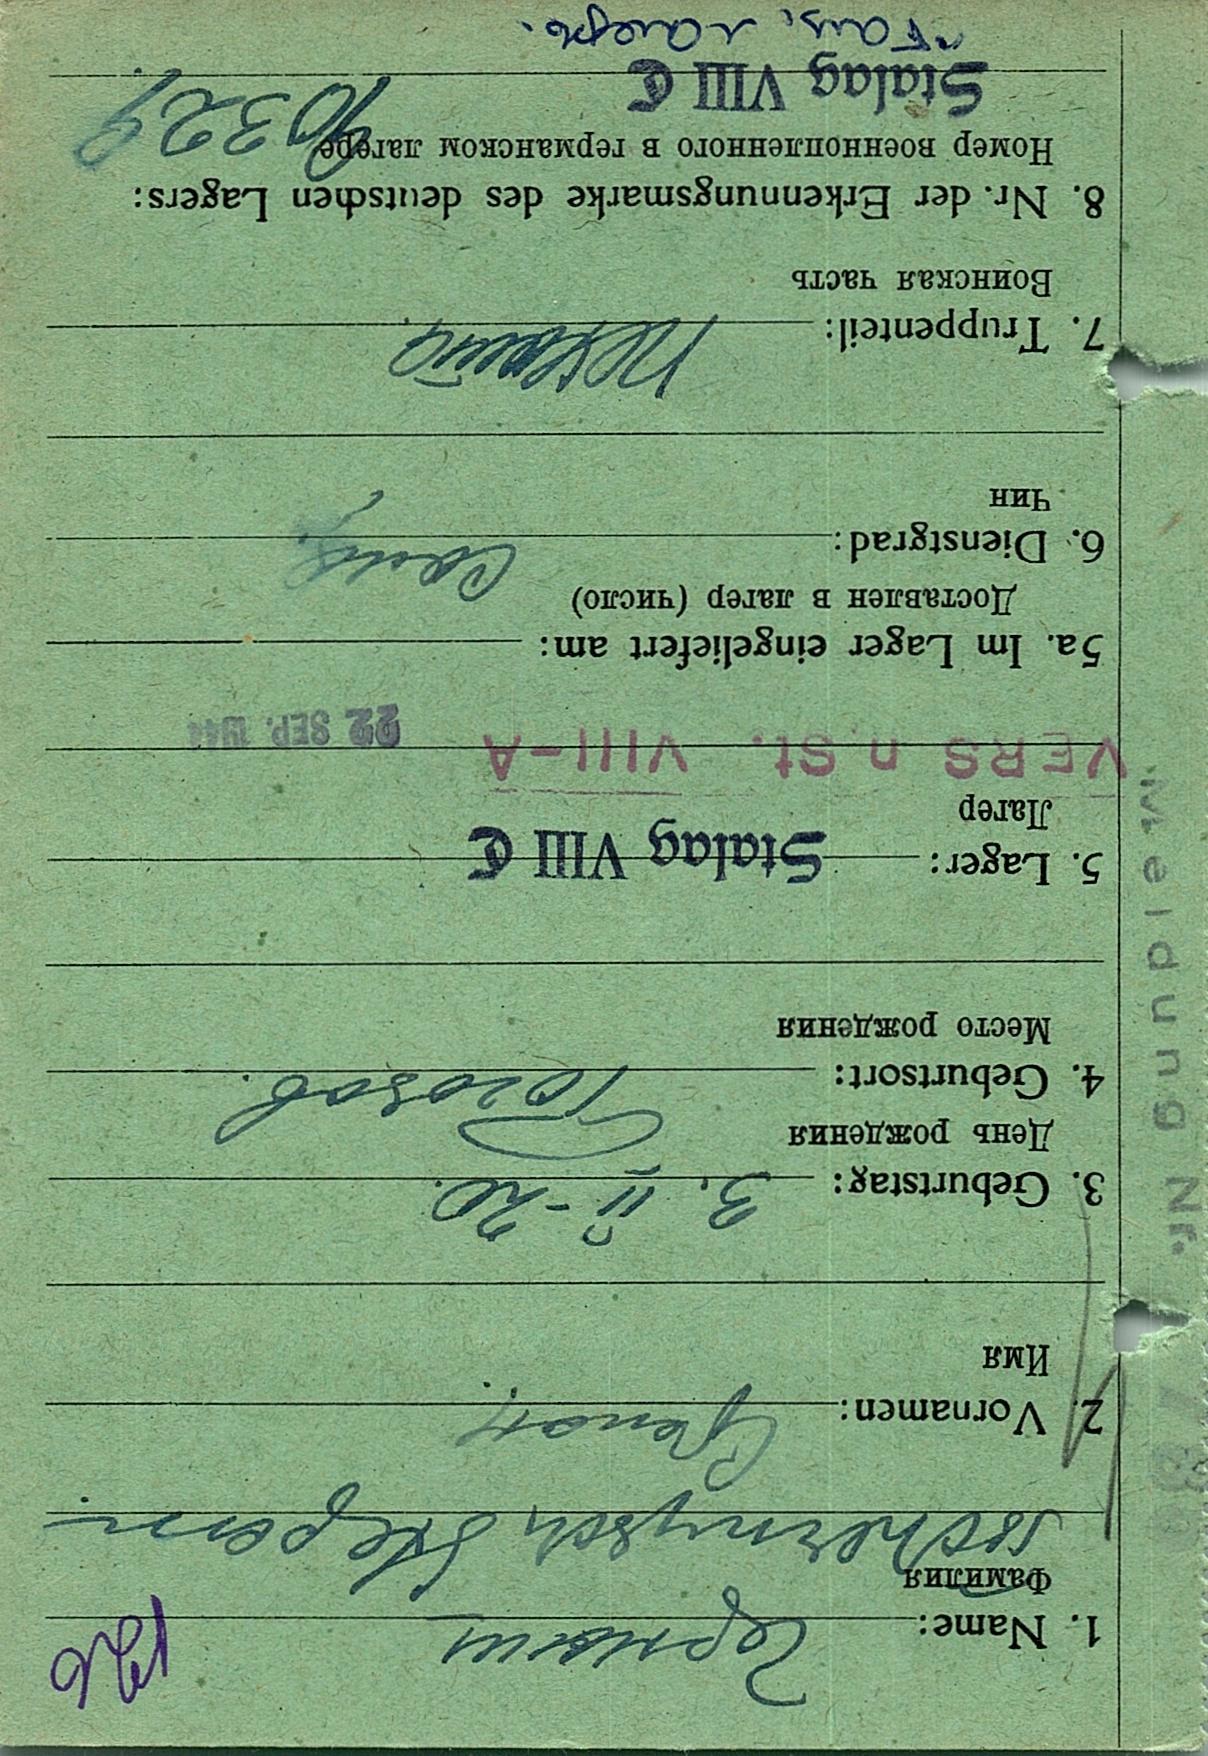 1. Name: Черныш
Фамилия
Tschernysch Stepan
2. Vornamen: Степан
Имя
3. Geburtstag: 3. II - 20.
День рождения
4. Geburtsort:
Место рождения
5. Lager: Stalag VIII C
Лагер
VERS n. St. VIII-A 22 SEP. 1944
5a. Im Lager eingeliefert am:
Доставлен в лагер (число)
6. Dienstgrad:
Чин
7. Truppenteil:
Воинская часть
8. Nr. der Erkennungsmarke des deutschen Lagers:
Номер военнопленного в германском лагере
Stalag VIII C
Meldung Nr.